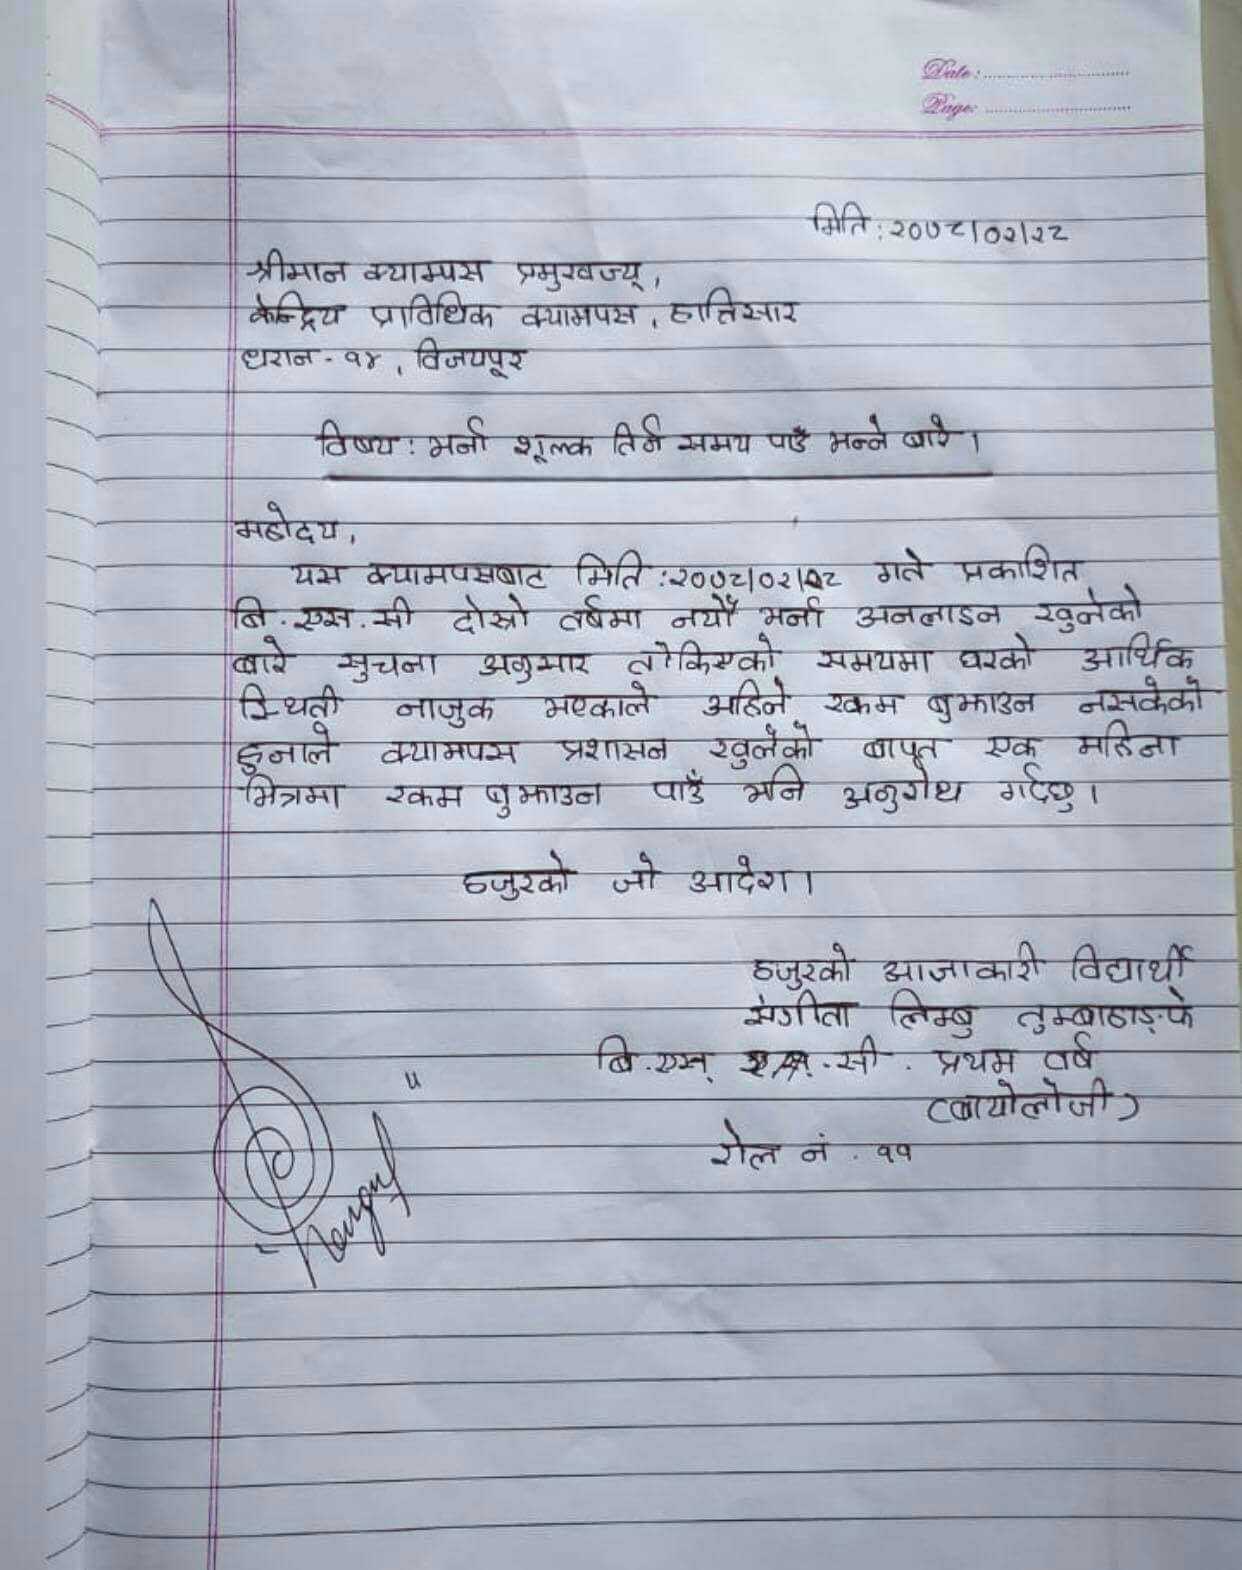 Date:
Page:
मिति : २०७८/०२/२८
श्रीमान क्याम्पस प्रमुखज्यू,
केन्द्रिय प्राविधिक क्यामपस, हात्तिसार
धरान - १४, विजयपूर
विषय : भर्ना शूल्क तिर्न समय पाउँ भन्ने बारे।
महोदय,
यस क्यामपसबाट मिति : २०७८/०२/२८ गते प्रकाशित
बि. एस. सी दोस्रो वर्षमा नयाँ भर्ना अनलाइन खुलेको
बारे सुचना अनुसार तोकिएको समयमा घरको आर्थिक
स्थिती नाजुक भएकाले अहिने रकम बुझाउन नसकेको
हुनाले क्यामपस प्रशासन खुलेको बापत एक महिना
भित्रमा रकम बुझाउन पाउँ भनि अनुरोध गर्दछु।
हजुरको जो आदेश।
हजुरको आज्ञाकारी विद्यार्थी
संगीता लिम्बु तुम्बाहाङफे
बि. एस् सी. प्रथम वर्ष
(बायोलोजी)
रोल नं. ११